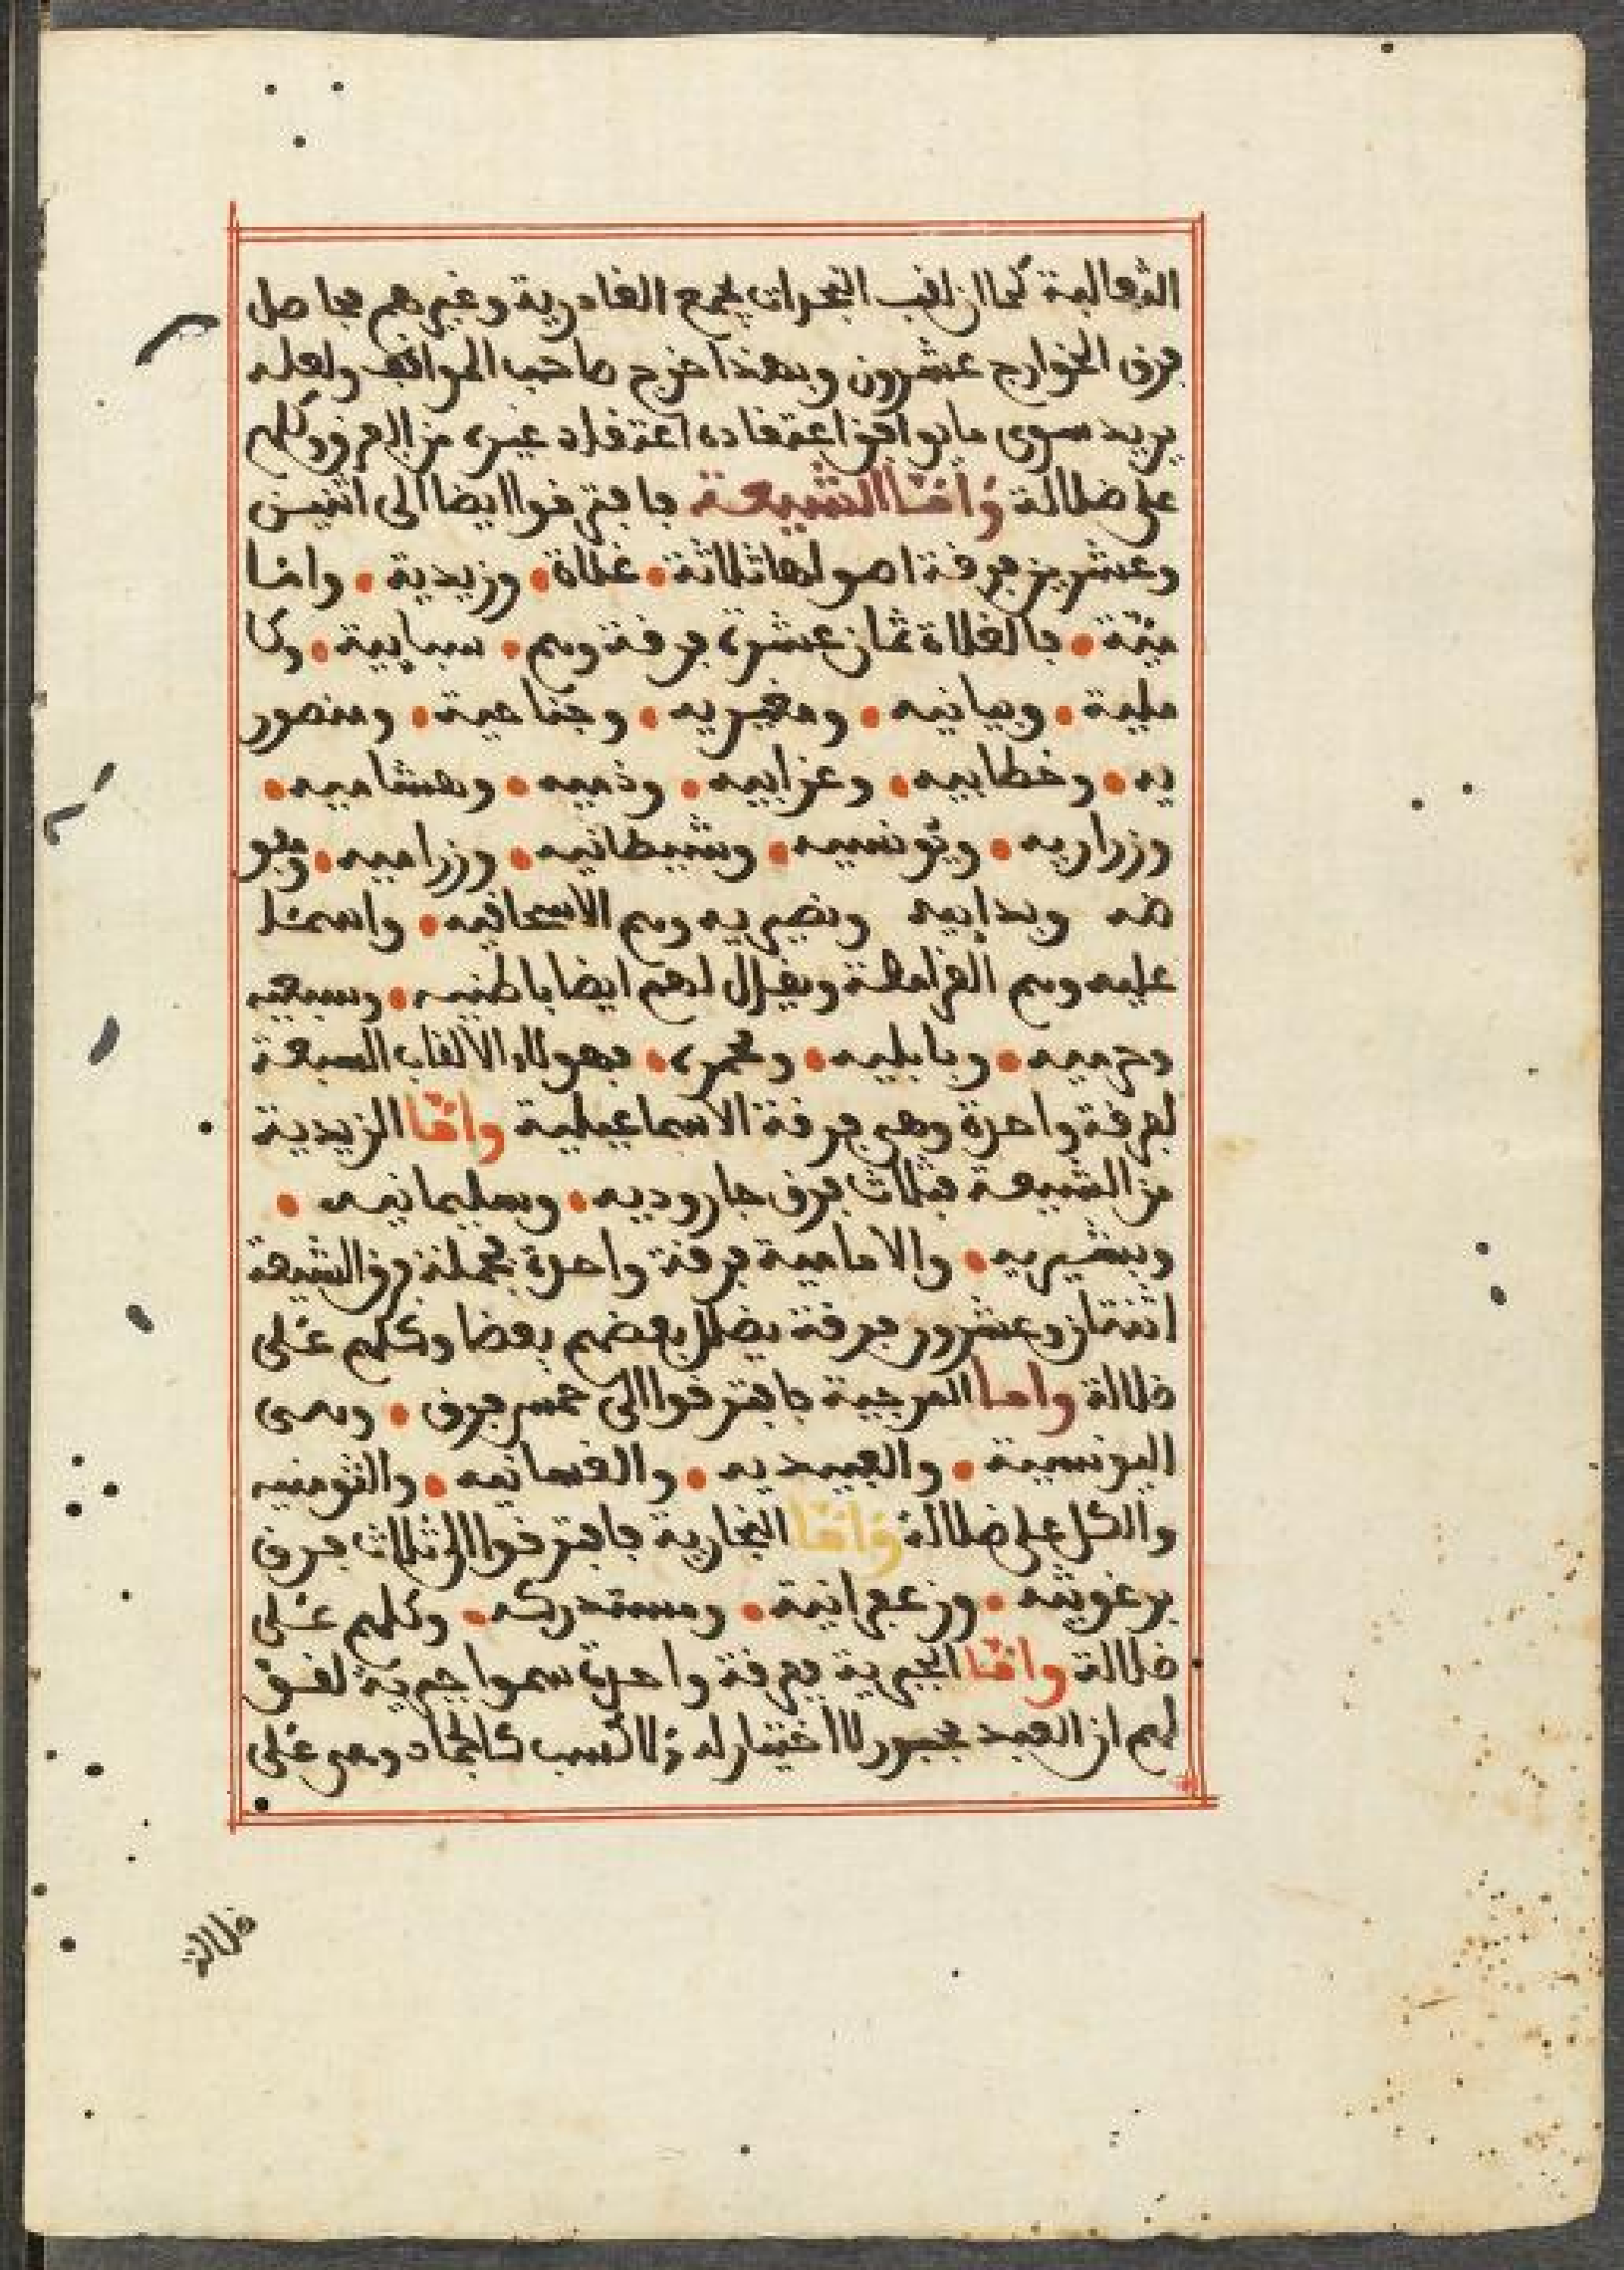 الثعالبة كما ان لقب النجدات يجمع العاذرية وغيرهم فحاصل
فرق الخوارج عشرون وبهذا خرج صاحب المواقف ولعله
يريد سوى ما يوافق اعتقاده اعتقاد غيره من الفرق وكلهم
على ضلالة واما الشيعة فافترقوا ايضا الى اثنين
وعشرين فرقة اصولها ثلاثة • غلاة • وزيدية • واما
مية • فالغلاة ثمان عشرة فرقة وهم • سبايية • وكا
ملية • وبيانيه • ومغيريه • وجناحية • ومنصور
يه • وخطابيه • وغرابيه • وذميه • وهشاميه •
وزراريه • ويونسيه • وشيطانيه • وزراميه • ومفو
ضه وبدايية ونصيريه وهم الاسحاقيه • واسمعا
عليه وهم القرامطة ويقال لهم ايضا باطنيه • وسبعيه
وخرميه • وبابليه • ومحمره • فهولاء الالقاب السبعة
لفرقة واحدة وهي فرقة الاسماعيلية واما الزيدية
من الشيعة فثلاث فرق جاروديه • وسليمانيه •
وبشيريه • والامامية فرقة واحدة فجملة فرق الشيعة
اثنتان وعشرون فرقة يضلل بعضهم بعضا وكلهم على
ضلالة واما المرجية فافترقوا الى خمس فرق • وهى
اليونسية • والعبيديه • والغسانيه • والثومنيه
والكل على ضلالة واما النجارية فافترقوا الى ثلاث فرق
برغوثيه • وزعفرانية • ومستدركه • وكلهم على
ضلالة واما الجبرية ففرقة واحدة سموا جبرية لقو
لهم ان العبد مجبور لا اختيار له ولا كسب كالجماد وهى على
ضلالة